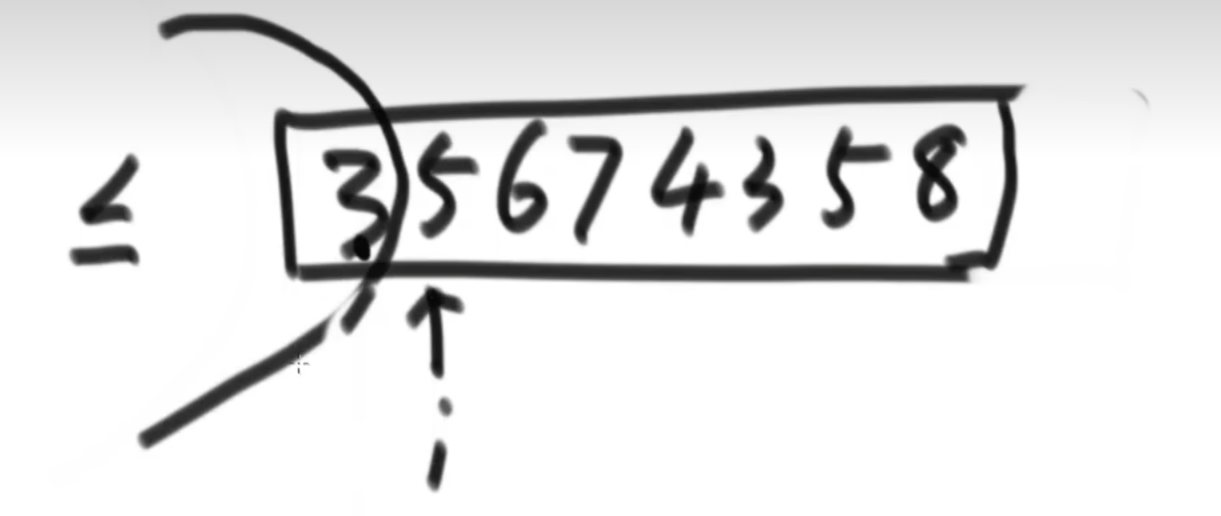 ≤ 3 5 6 7 4 3 5 8
i